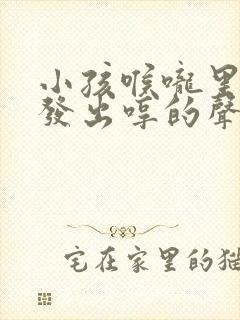 小孩喉嚨里
發出哼的聲
宅在家里的猫